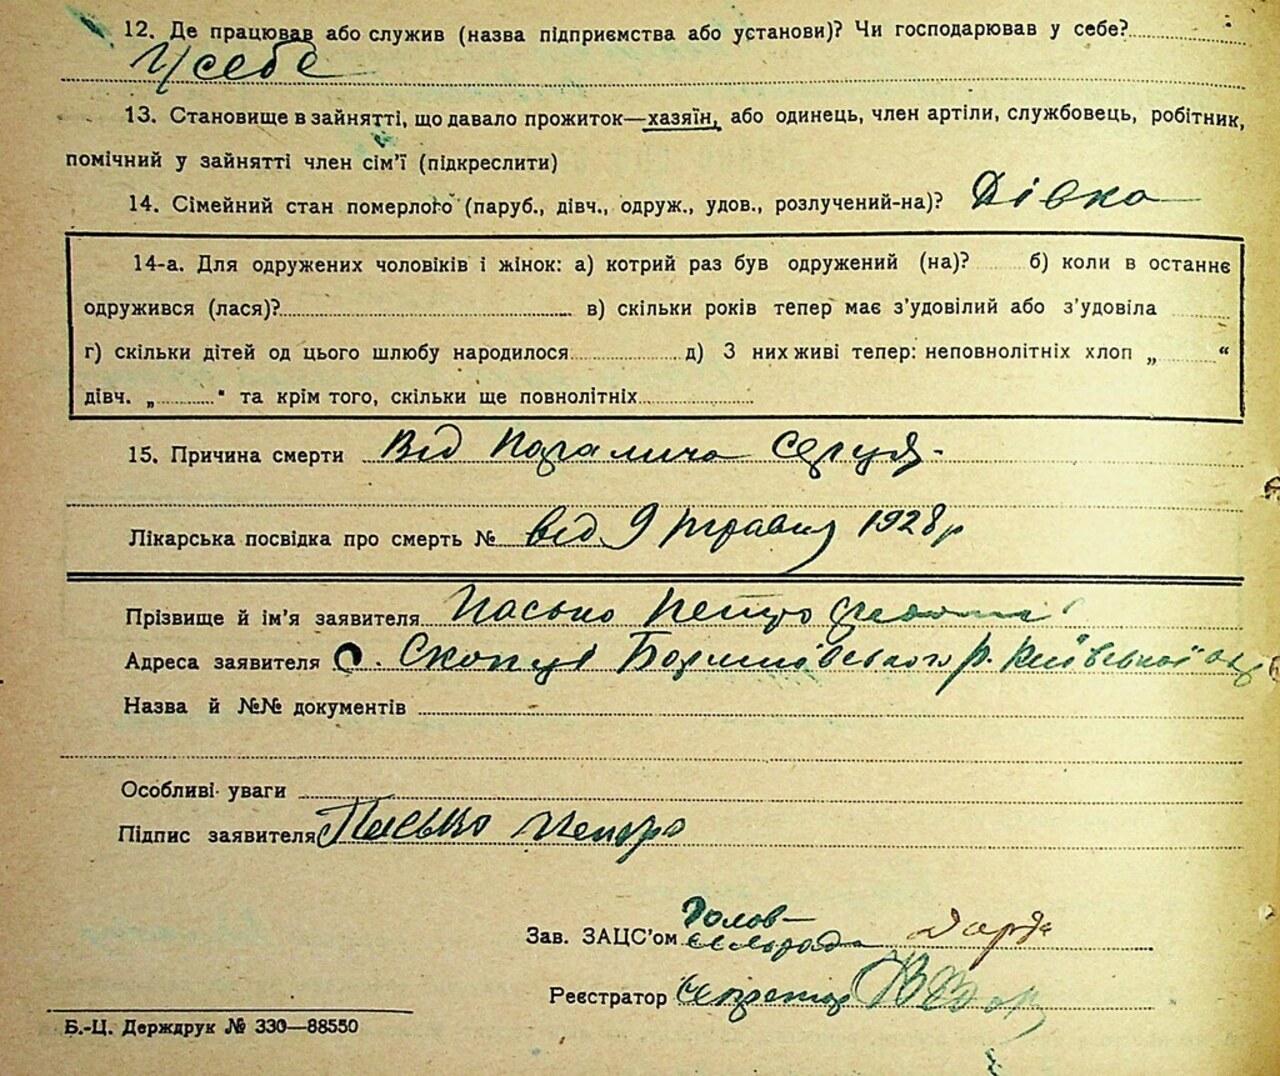 12. Де працював або служив (назва підприємства або установи)? Чи господарював у себе?
У себе
13. Становище в зайнятті, що давало прожиток—хазяїн, або одинець, член артіли, службовець, робітник,
помічний у зайнятті член сім'ї (підкреслити)
14. Сімейний стан померлого (паруб., дівч., одруж., удов., розлучений-на)? Дівка
14-а. Для одружених чоловіків і жінок: а) котрий раз був одружений (на)? б) коли в останнє
одружився (лася)? в) скільки років тепер має з'удовілий або з'удовіла
г) скільки дітей од цього шлюбу народилося д) З них живі тепер: неповнолітніх хлоп „ “
дівч. „ " та крім того, скільки ще повнолітніх
15. Причина смерти Від серця
Лікарська посвідка про смерть № від 9 травня 1928 р
Прізвище й ім'я заявителя Пасько Петро
Адреса заявителя с. Скопці Бориспівського р. Київської ок
Назва й №№ документів
Особливі уваги
Підпис заявителя Пасько Петро
Зав. ЗАЦС'ом Голов-
сельради
Реєстратор Секретар
Б.-Ц. Держдрук № 330—88550